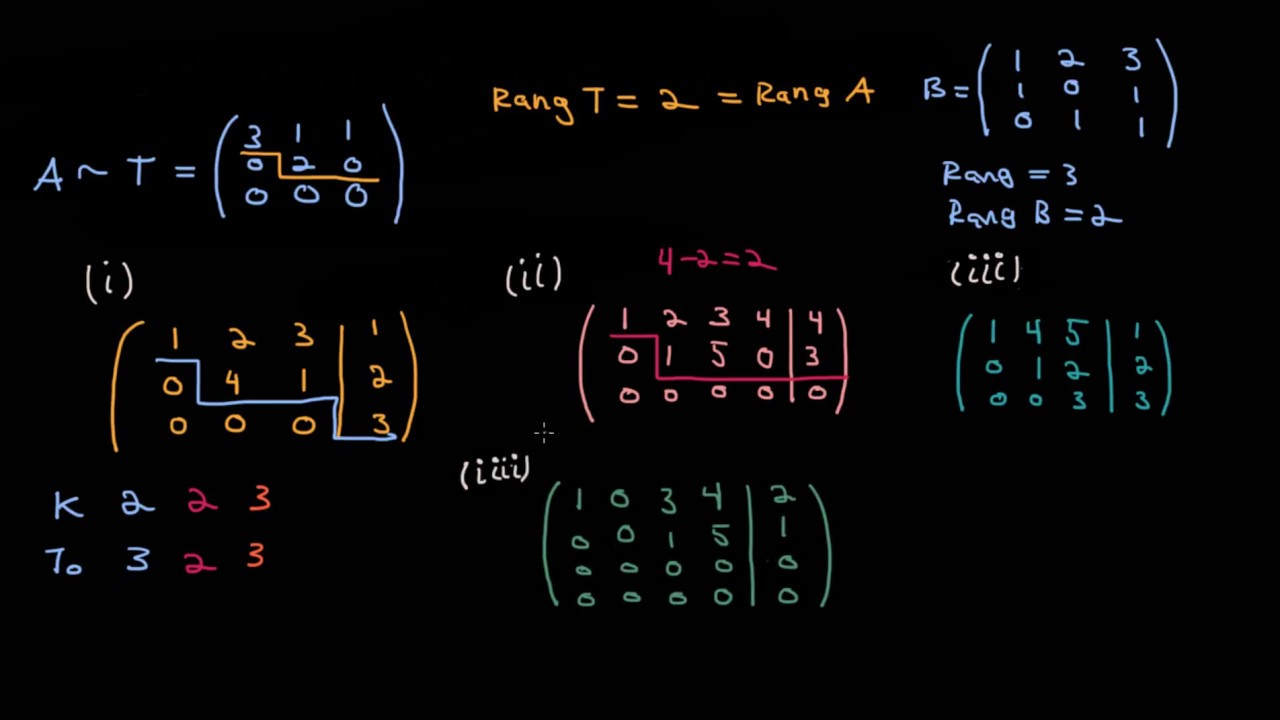 Rang T = 2 = Rang A
A ~ T = ( 3 1 1
0 2 0
0 0 0 )
B = ( 1 2 3
1 0 1
0 1 1 )
Rang = 3
Rang B = 2
(i)
( 1 2 3 | 1
0 4 1 | 2
0 0 0 | 3 )
K 2 2 3
To 3 2 3
(ii)
4-2=2
( 1 2 3 4 | 4
0 1 5 0 | 3
0 0 0 0 | 0 )
(iii)
( 1 4 5 | 1
0 1 2 | 2
0 0 3 | 3 )
(iii)
( 1 0 3 4 | 2
0 0 1 5 | 1
0 0 0 0 | 0
0 0 0 0 | 0 )